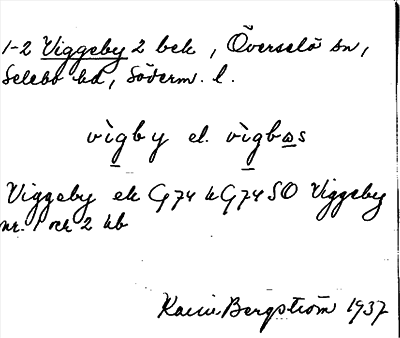 1-2 Viggeby 2 bek, Överselö sn,
Selebo hd, Söderm. l.
vìgby el. vìgbəs
Viggeby ek G74 k G74 SO Viggeby
nr. 1 och 2 kb
Karin Bergström 1937